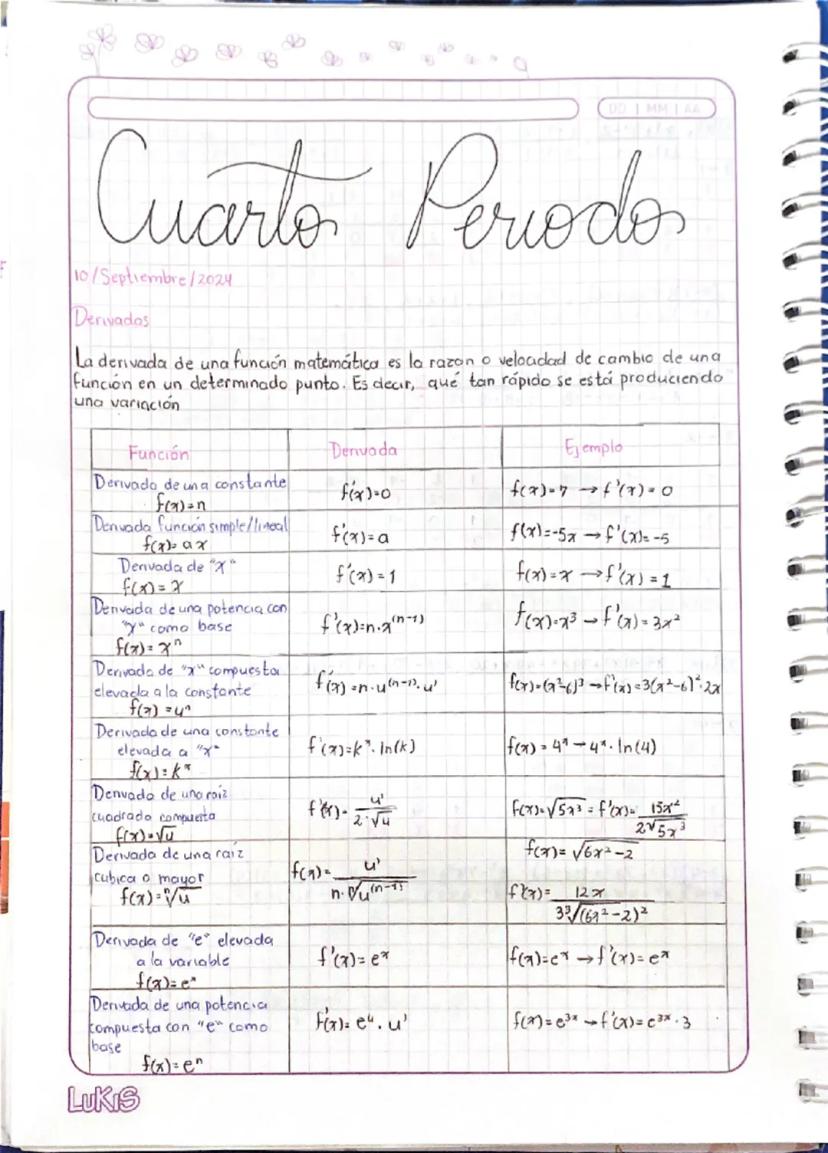 DD | MM | AA
Cuarto Periodo
10/Septiembre/2024
Derivadas
La derivada de una función matemática es la razon o velocidad de cambio de una
función en un determinado punto. Es decir, qué tan rápido se está produciendo
una variación
Función Derivada Ejemplo
Derivada de una constante
f(x)=n f'(x)=0 f(x)=7 → f'(x)=0
Derivada función simple/lineal
f(x)=ax f'(x)=a f(x)=-5x → f'(x)=-5
Derivada de "x"
f(x)=x f'(x)=1 f(x)=x → f'(x)=1
Derivada de una potencia con
"x" como base f'(x)=n·x^(n-1) f(x)=x³ → f'(x)=3x²
f(x)=xⁿ
Derivada de "x" compuesta
elevada a la constante f'(x)=n·u^(n-1)·u' f(x)=(x²-6)³ → f'(x)=3(x²-6)²·2x
f(x)=uⁿ
Derivada de una constante
elevada a "x" f'(x)=kˣ·ln(k) f(x)=4ˣ → 4ˣ·ln(4)
f(x)=kˣ
Derivada de una raiz
cuadrada compuesta f'(x)=u'/2·√u f(x)=√5x³ = f'(x)=15x²/2√5x³
f(x)=√u
Derivada de una raiz
cubica o mayor f(x)=u'/n·ⁿ√u^(n-1) f(x)=√6x²-2
f(x)=ⁿ√u f'(x)=12x/3³√(6x²-2)²
Derivada de "e" elevada
a la variable f'(x)=eˣ f(x)=eˣ → f'(x)=eˣ
f(x)=eˣ
Derivada de una potencia
compuesta con "e" como f'(x)=eᵘ·u' f(x)=e³ˣ → f'(x)=e³ˣ·3
base
f(x)=eⁿ
LUKIS